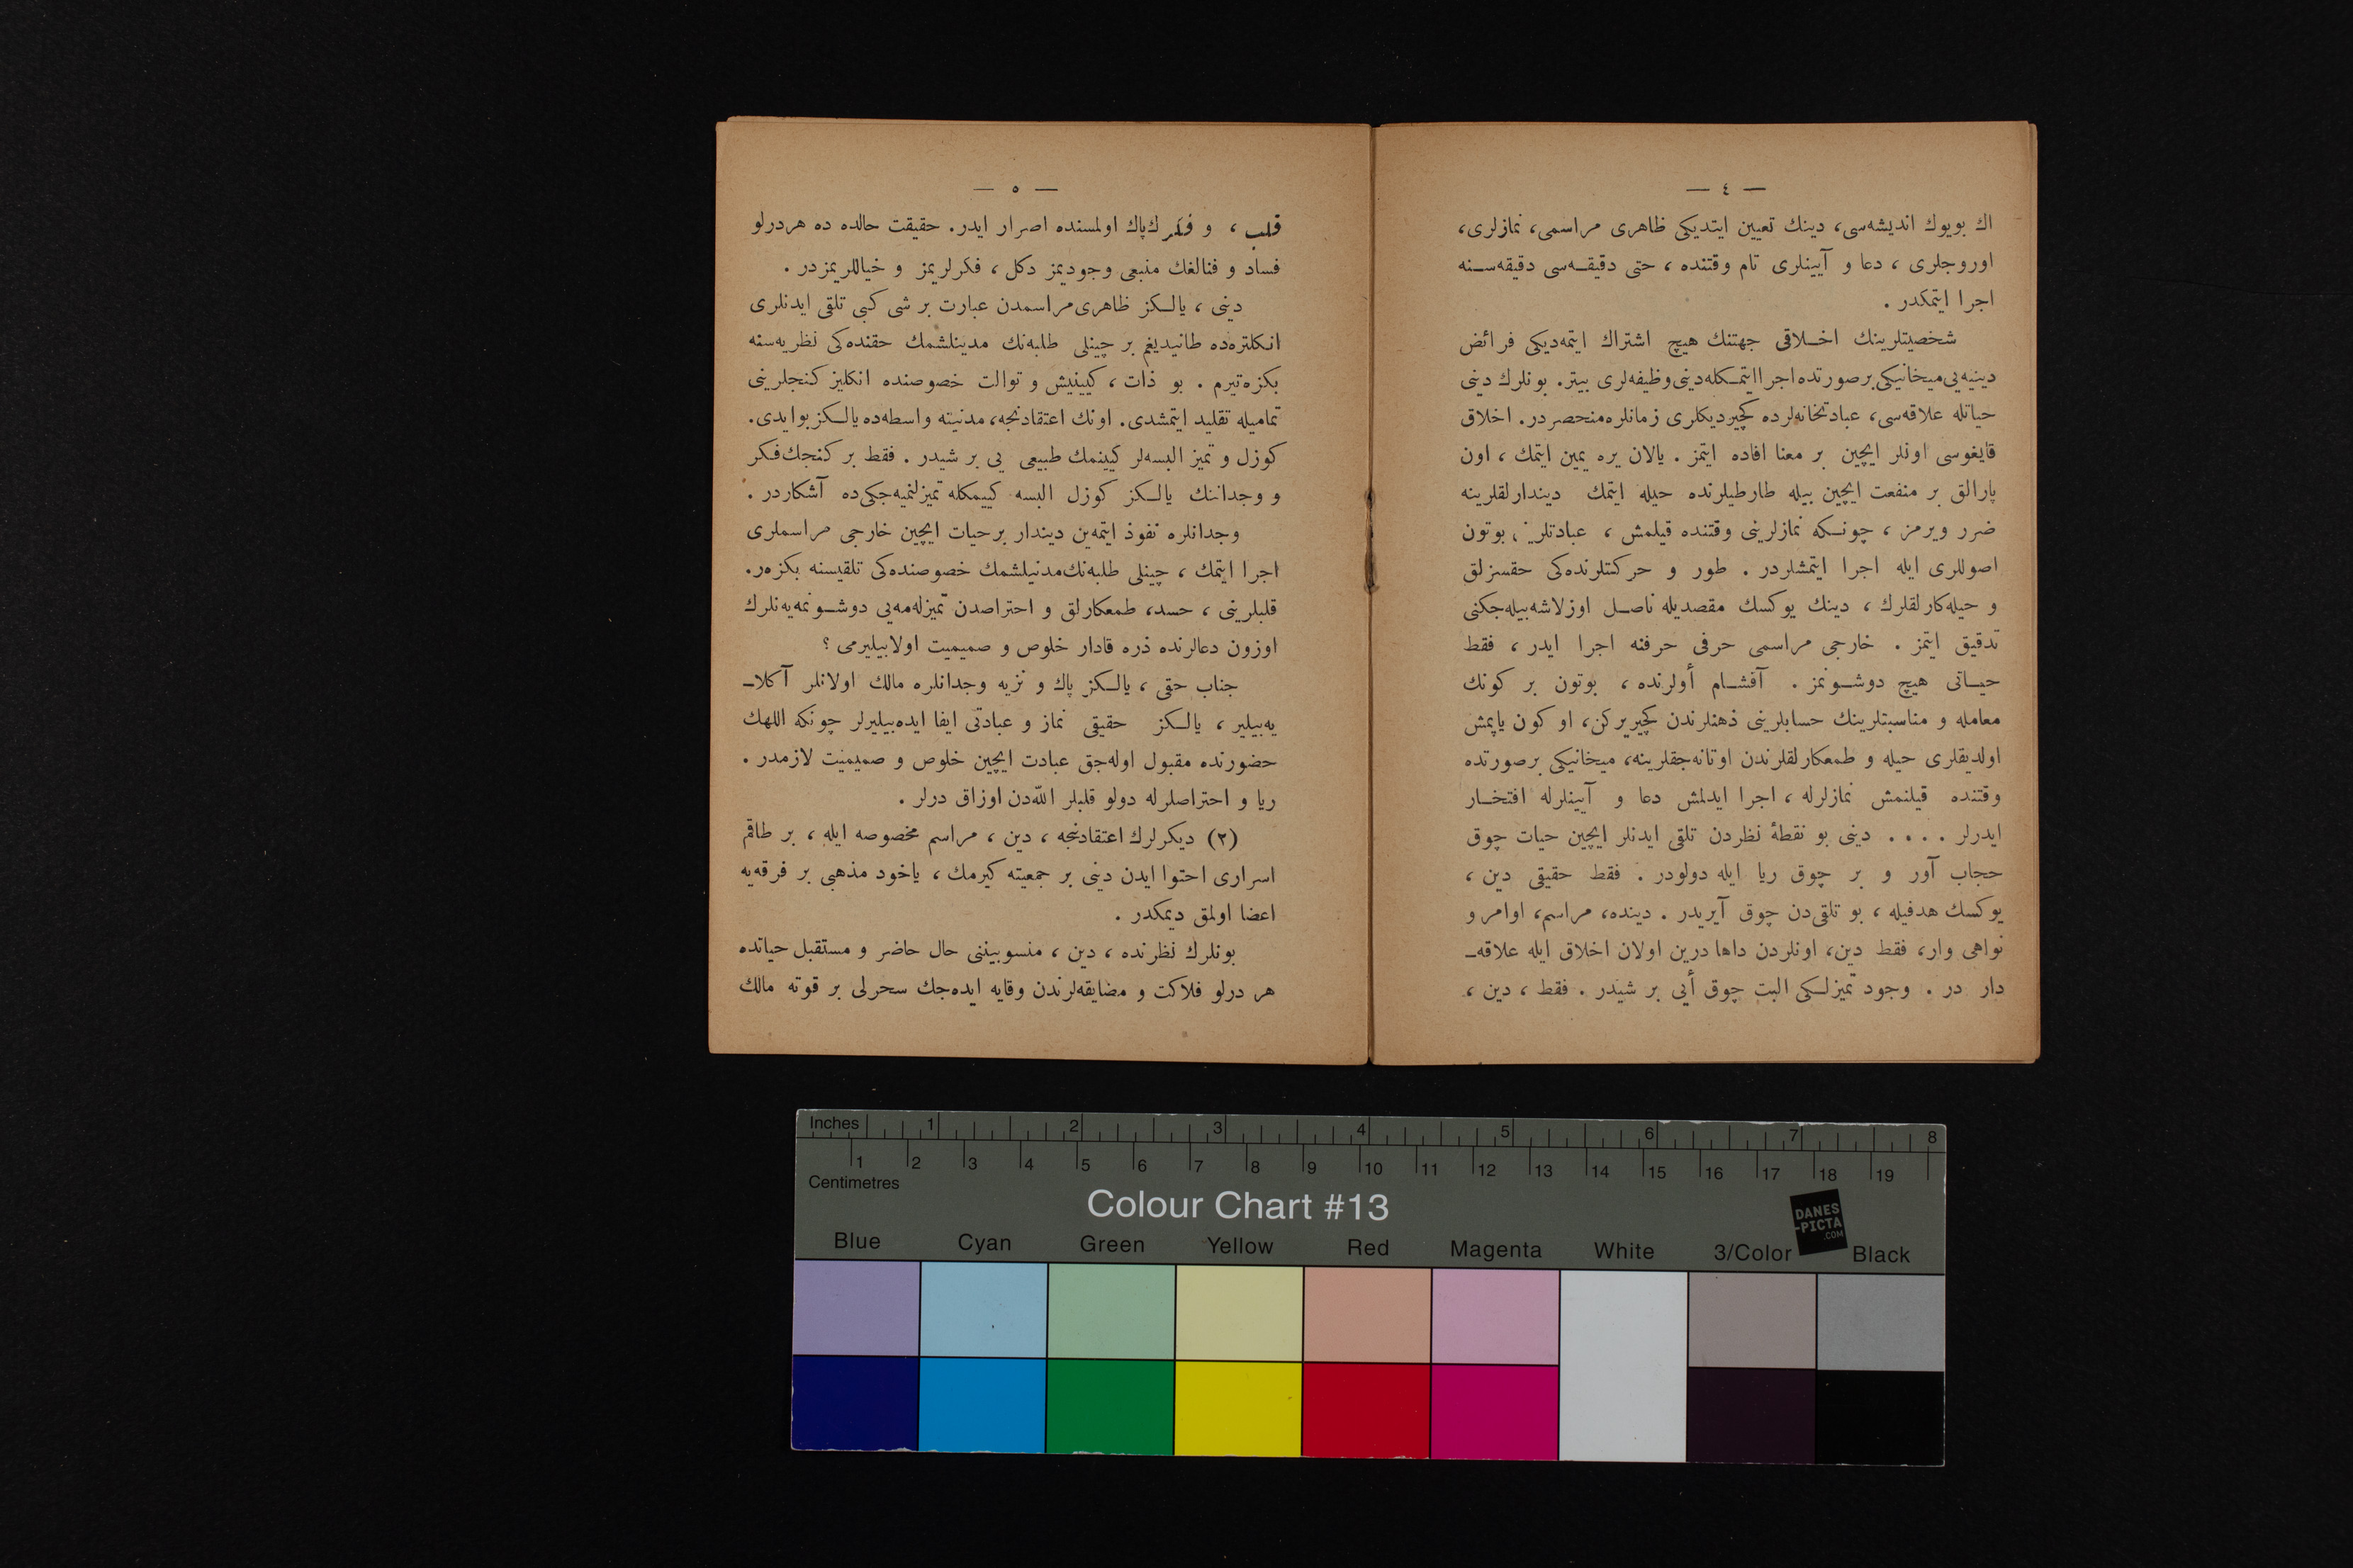 — ٤ —
اك بويوك انديشه‌سى، دينك تعيين ايتديكى ظاهرى مراسمى، نمازلرى،
اوروجلرى ، دعا و آيينلرى تام وقتنده ، حتى دقيقه‌سى دقيقه‌سنه
اجرا ايتمكدر .
شخصيتلرينك اخلاقى جهتنك هيچ اشتراك ايتمه‌ديكى فرائض
دينيه‌يى ميخانيكى برصورتده اجرا ايتمكله دينى وظيفه‌لرى بيتر. بونلرك دينى
حياتله علاقه‌سى، عبادتخانه‌لرده كچيرديكلرى زمانلره منحصردر. اخلاق
قايغوسى اونلر ايچين بر معنا افاده ايتمز . يالان يره يمين ايتمك ، اون
پارالق بر منفعت ايچين بيله طارطيلرنده حيله ايتمك ديندارلقلرينه
ضرر ويرمز ، چونكه نمازلرينى وقتنده قيلمش ، عبادتلرينى بوتون
اصوللرى ايله اجرا ايتمشلردر . طور و حركتلرنده‌كى حقسزلق
و حيله‌كارلقلرك ، دينك يوكسك مقصديله ناصل اوزلاشه‌بيله‌جكنى
تدقيق ايتمز . خارجى مراسمى حرفى حرفنه اجرا ايدر ، فقط
حياتى هيچ دوشونمز . آقشام أولرنده ، بوتون بر كونك
معامله و مناسبتلرينك حسابلرينى ذهنلرندن كچيريركن، او كون ياپمش
اولديقلرى حيله و طمعكارلقلرندن اوتانه‌جقلرينه، ميخانيكى برصورتده
وقتنده قيلنمش نمازلرله ، اجرا ايدلمش دعا و آيينلرله افتخار
ايدرلر . . . . دينى بو نقطۀ نظردن تلقى ايدنلر ايچين حيات چوق
حجاب آور و بر چوق ريا ايله دولودر . فقط حقيقى دين ،
يوكسك هدفيله ، بو تلقى‌دن چوق آيريدر . دينده، مراسم، اوامر و
نواهى وار، فقط دين، اونلردن داها درين اولان اخلاق ايله علاقه‌ـ
دار در . وجود تميزلكى البت چوق أيى بر شيدر . فقط ، دين ،
— ٥ —
قلب ، و فكرك پاك اولمسنده اصرار ايدر. حقيقت حالده ده هردرلو
فساد و فنالغك منبعى وجوديمز دكل ، فكرلريمز و خياللريمزدر .
دينى ، يالكز ظاهرى مراسمدن عبارت بر شى كبى تلقى ايدنلرى
انكلتره‌ده طانيديغم بر چينلى طلبه‌نك مدينلشمك حقنده‌كى نظريه‌سنه
بكزه‌تيرم . بو ذات ، كيينيش و توالت خصوصنده انكليز كنجلرينى
تماميله تقليد ايتمشدى. اونك اعتقادنجه، مدنيته واسطه‌ده يالكز بو ايدى.
كوزل و تميز البسه‌لر كيينمك طبيعى يى بر شيدر . فقط بر كنجك فكر
و وجداننك يالكز كوزل البسه كييمكله تميزلنميه‌جكى ده آشكاردر .
وجدانلره نفوذ ايتمه‌ين ديندار برحيات ايچين خارجى مراسملرى
اجرا ايتمك ، چينلى طلبه‌نك مدنيلشمك خصوصنده‌كى تلقيسنه بكزه‌ر.
قلبلرينى ، حسد، طمعكارلق و احتراصدن تميزله‌مه‌يى دوشونمه‌يه‌نلرك
اوزون دعالرنده ذره قادار خلوص و صميميت اولابيليرمى ؟
جناب حقى ، يالكز پاك و نزيه وجدانلره مالك اولانلر آكلاـ
يه‌بيلير ، يالكز حقيقى نماز و عبادتى ايفا ايده‌بيليرلر چونكه اللهك
حضورنده مقبول اوله‌جق عبادت ايچين خلوص و صميميت لازمدر .
ريا و احتراصلرله دولو قلبلر اللّه‌دن اوزاق درلر .
(٢) ديكرلرك اعتقادنجه ، دين ، مراسم مخصوصه ايله ، بر طاقم
اسرارى احتوا ايدن دينى بر جمعيته كيرمك ، ياخود مذهبى بر فرقه‌يه
اعضا اولمق ديمكدر .
بونلرك نظرنده ، دين ، منسوبيننى حال حاضر و مستقبل حياتده
هر درلو فلاكت و مضايقه‌لرندن وقايه ايده‌جك سحرلى بر قوته مالك
Inches 1 2 3 4 5 6 7 8
1 2 3 4 5 6 7 8 9 10 11 12 13 14 15 16 17 18 19
Centimetres
Colour Chart #13
DANES
-PICTA
.COM
Blue Cyan Green Yellow Red Magenta White 3/Color Black